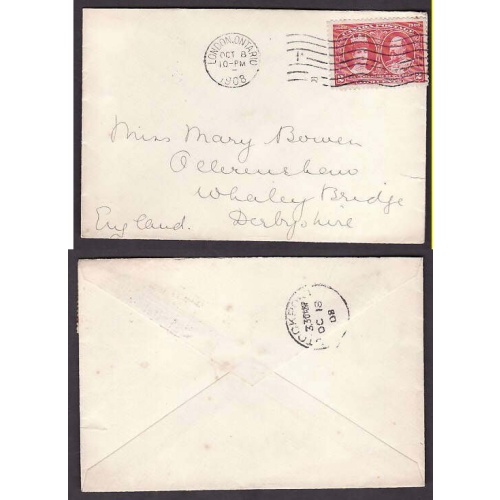 LONDON, ONTARIO
OCT 8
10-PM
1908
CANADA POSTAGE
Miss Mary Bowen
Ollerenshaw
Whaley Bridge
England. Derbyshire
OC 18
08